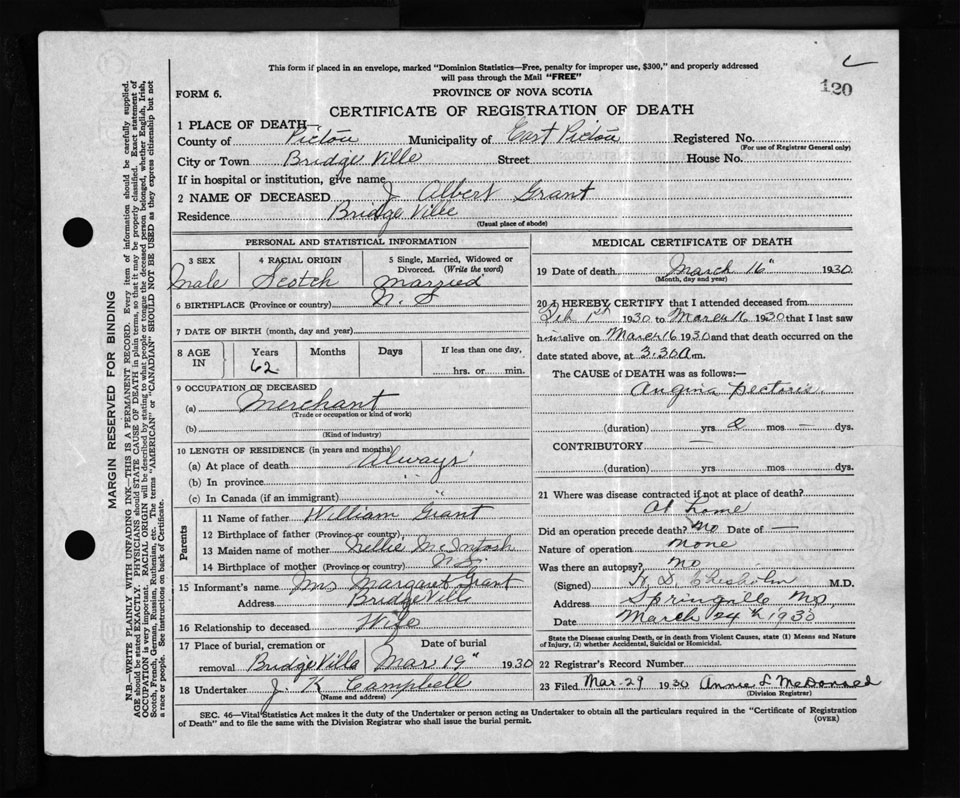 This form if placed in an envelope, marked "Dominion Statistics—Free, penalty for improper use, $300," and properly addressed
will pass through the Mail "FREE"
120
FORM 6.
PROVINCE OF NOVA SCOTIA
CERTIFICATE OF REGISTRATION OF DEATH
1 PLACE OF DEATH
County of Pictou Municipality of East Pictou Registered No.
(For use of Registrar General only)
City or Town Bridge Ville Street House No.
If in hospital or institution, give name
2 NAME OF DECEASED J Albert Grant
Residence Bridge Ville
(Usual place of abode)
PERSONAL AND STATISTICAL INFORMATION
3 SEX 4 RACIAL ORIGIN 5 Single, Married, Widowed or
Divorced. (Write the word)
Male Scotch Married
6 BIRTHPLACE (Province or country) N. S
7 DATE OF BIRTH (month, day and year)
8 AGE IN Years Months Days If less than one day,
62 hrs. or min.
9 OCCUPATION OF DECEASED
(a) Merchant
(Trade or occupation or kind of work)
(b)
(Kind of industry)
10 LENGTH OF RESIDENCE (in years and months)
(a) At place of death Always
(b) In province "
(c) In Canada (if an immigrant) "
Parents
11 Name of father William Grant
12 Birthplace of father (Province or country)
13 Maiden name of mother Nellie McIntosh
14 Birthplace of mother (Province or country) N S
15 Informant's name Mrs Margaret Grant
Address Bridge Ville
16 Relationship to deceased Wife
17 Place of burial, cremation or Date of burial
removal Bridge Ville Mar 19" 1930
18 Undertaker J. K Campbell
(Name and address)
MEDICAL CERTIFICATE OF DEATH
19 Date of death March 16" 1930
(Month, day and year)
20 I HEREBY CERTIFY that I attended deceased from
Feb 1st 1930 to March 16 1930 that I last saw
him alive on March 16 1930 and that death occurred on the
date stated above, at 3.30 a.m.
The CAUSE of DEATH was as follows:—
Angina Pectoris.
(duration) yrs mos — dys.
CONTRIBUTORY —
(duration) yrs mos dys.
21 Where was disease contracted if not at place of death?
At home
Did an operation precede death? No Date of —
Nature of operation None
Was there an autopsy? No
(Signed) H. D. Chisholm M.D.
Address Springville
Date March 24th 1930
State the Disease causing Death, or in death from Violent Causes, state (1) Means and Nature
of Injury, (2) whether Accidental, Suicidal or Homicidal.
22 Registrar's Record Number
23 Filed Mar. 29 1930 Annie L McDonald
(Division Registrar)
SEC. 46—Vital Statistics Act makes it the duty of the Undertaker or person acting as Undertaker to obtain all the particulars required in the "Certificate of Registration
of Death" and to file the same with the Division Registrar who shall issue the burial permit.
(OVER)
MARGIN RESERVED FOR BINDING
N.B.—WRITE PLAINLY WITH UNFADING INK—THIS IS A PERMANENT RECORD. Every item of information should be carefully supplied.
AGE should be stated EXACTLY. PHYSICIANS should STATE CAUSE OF DEATH in plain terms, so that it may be properly classified. Exact statement of
OCCUPATION is very important. RACIAL ORIGIN will be described by stating to what people or tongue the deceased person belonged, whether English, Irish,
Scotch, French, German, Russian, Ruthenian, etc. The terms "AMERICAN" or "CANADIAN" SHOULD NOT BE USED as they express citizenship but not
a race or people. See instructions on back of Certificate.